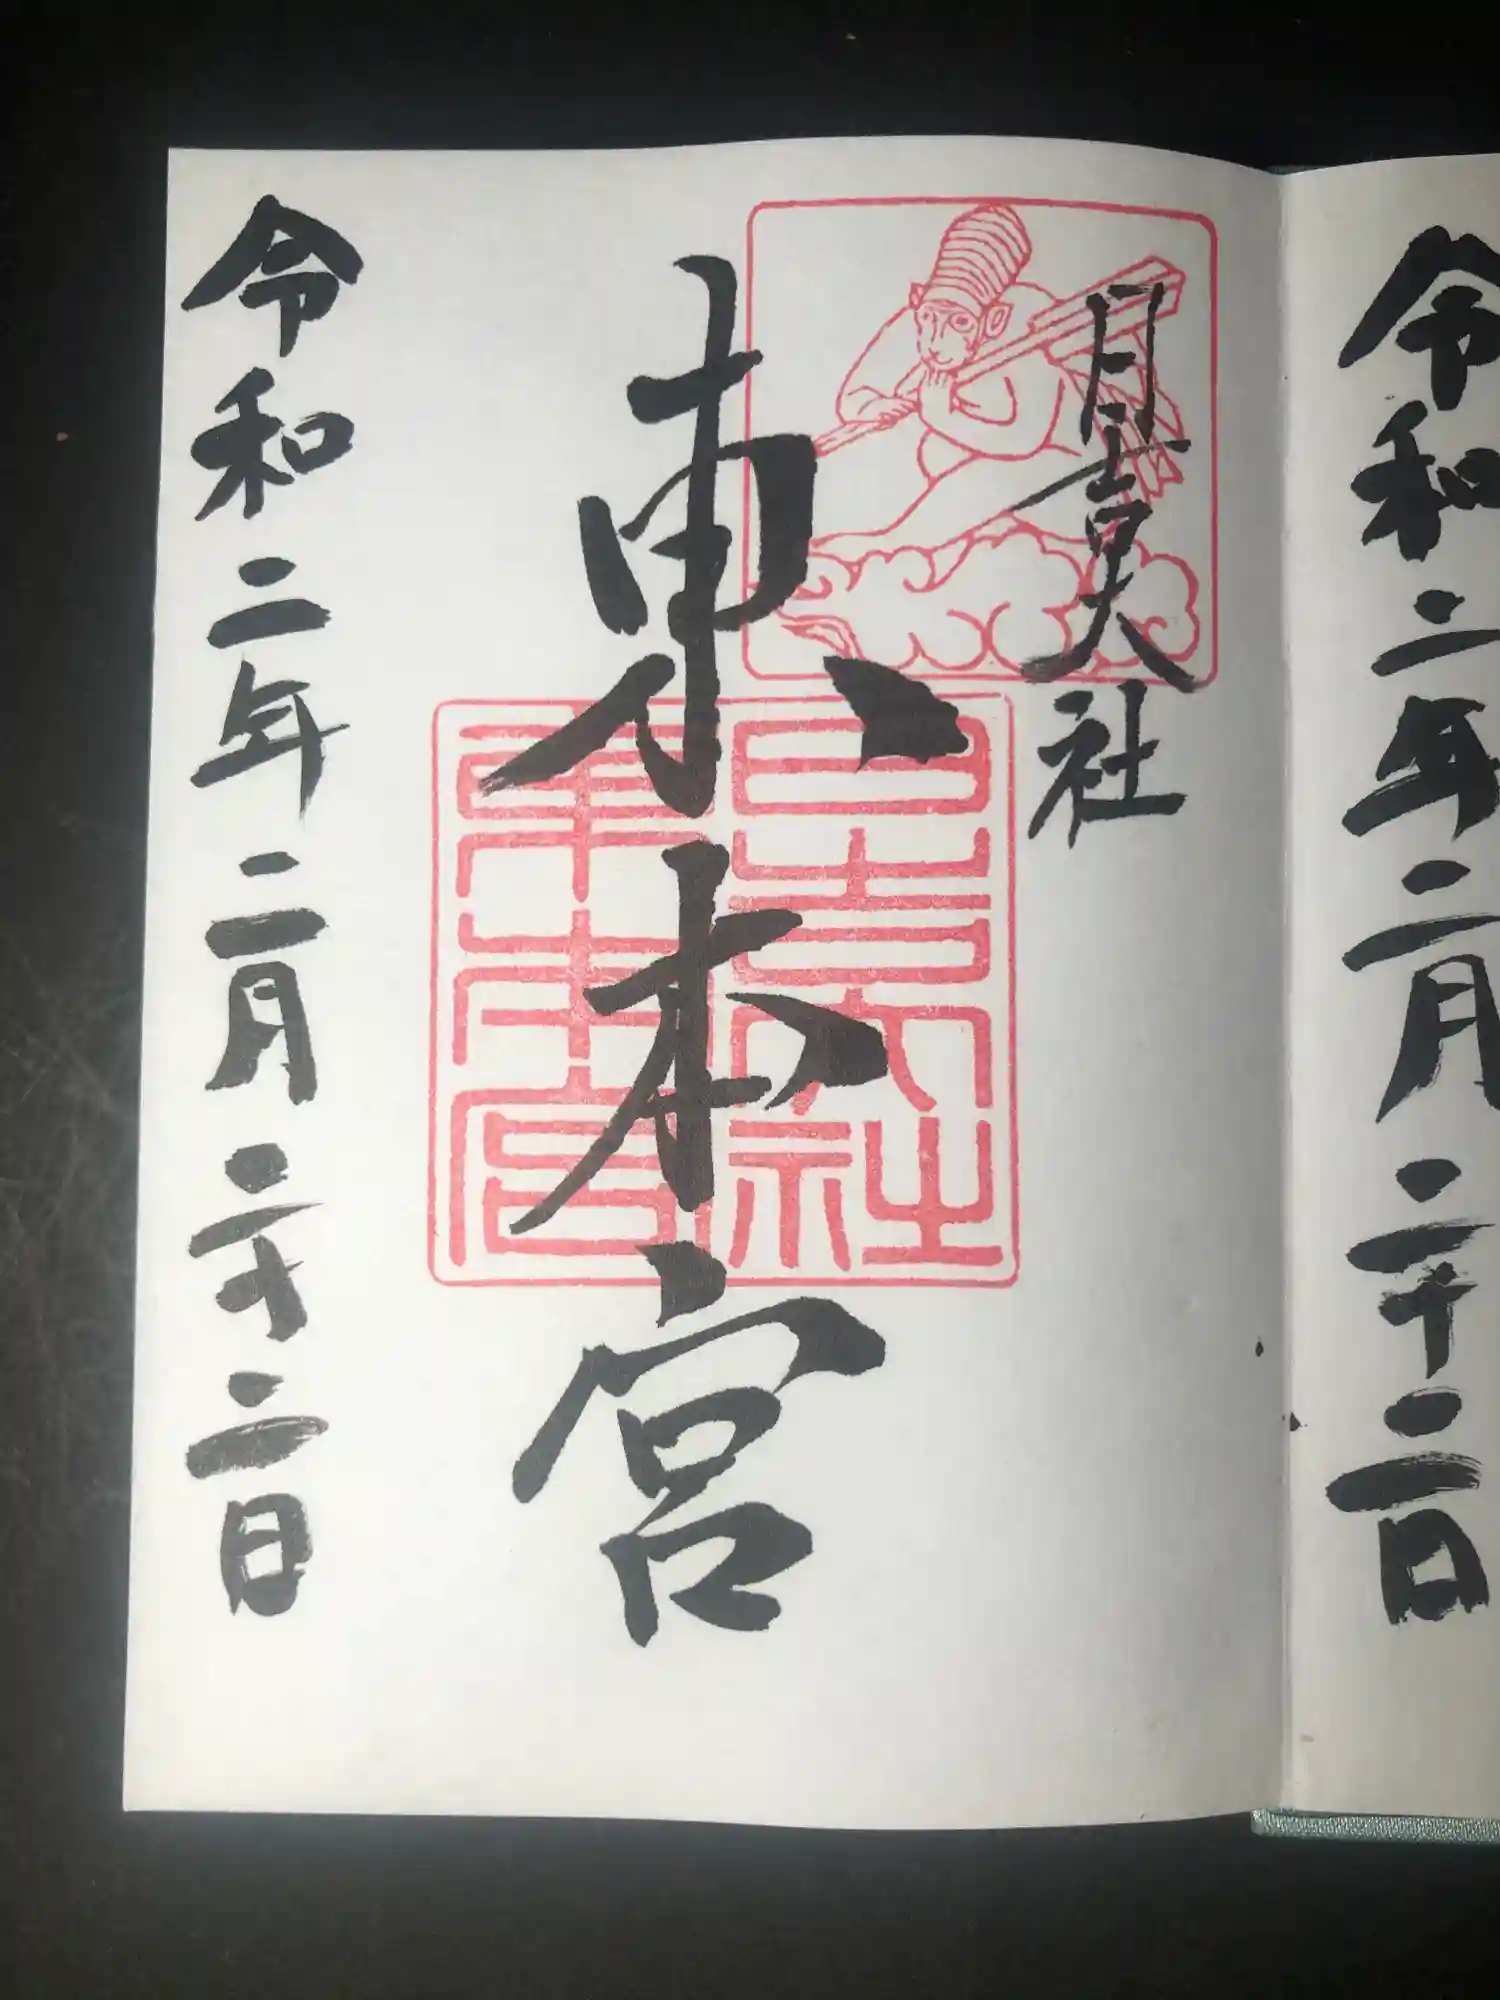 日吉大社
東本宮
令和二年二月二十二日
日吉大社
東本宮
令和二年二月二十二日